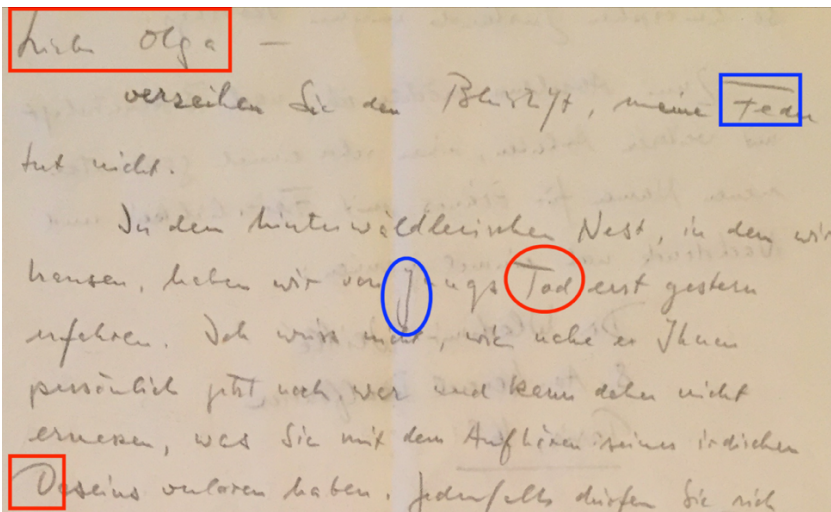 Liebe Olga —
verzeihen Sie den Bleistift, meine Feder
tut nicht.
In dem hinterwäldlerischen Nest, in dem wir
hausen, haben wir von Jungs Tod erst gestern
erfahren. Ich weiss nicht, wie nahe er Ihnen
persönlich jetzt noch war und kann daher nicht
ermessen, was Sie mit dem Aufhören seines irdischen
Daseins verloren haben. Jedenfalls dürfen Sie sich